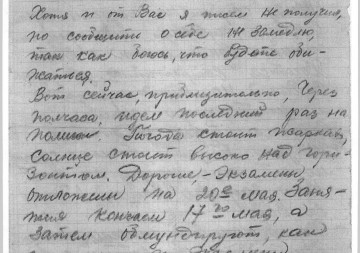 Хотя и от Вас я писем не получил,
но сообщить о себе не замедлю,
так как боюсь, что будете оби-
жаться.
Вот сейчас, приблизительно, через
полчаса, идем последний раз на
полигон. Погода стоит жаркая,
солнце стоит высоко над гори-
зонтом. Дорогие, - экзамены
отложили на 20ое мая. Заня-
тия кончаем 17го мая, а
затем обмундируют, как